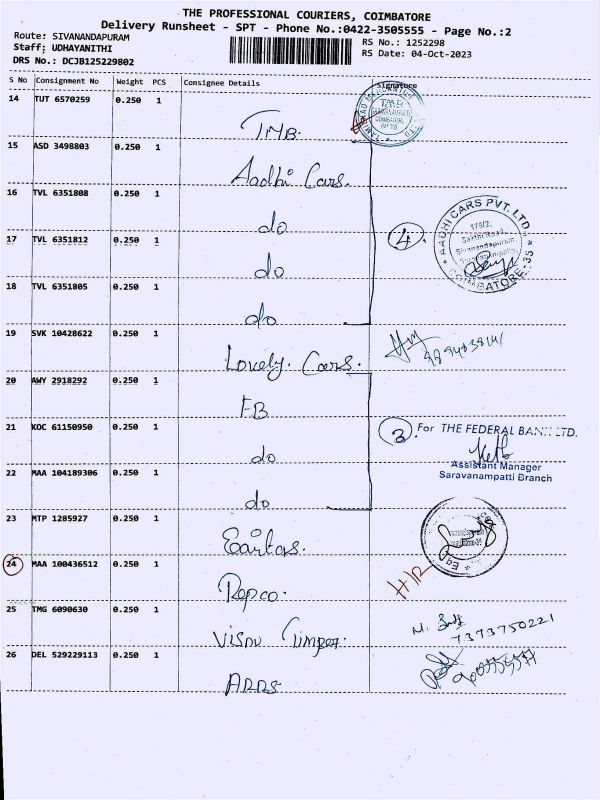 THE PROFESSIONAL COURIERS, COIMBATORE
Delivery Runsheet - SPT - Phone No.:0422-3505555 - Page No.:2
Route: SIVANANDAPURAM
Staff: UDHAYANITHI
DRS No.: DCJB125229802
RS No.: 1252298
RS Date: 04-Oct-2023
S No Consignment No Weight PCS Consignee Details Signature
14 TUT 6570259 0.250 1
TMB.
15 ASD 3498803 0.250 1
Aadhi Cars.
16 TVL 6351808 0.250 1
do
17 TVL 6351812 0.250 1
do
18 TVL 6351805 0.250 1
do
4.
AADHI CARS PVT. LTD.
179/2,
Sakthi Road,
Sivanandapuram,
COIMBATORE-35
19 SVK 10428622 0.250 1
Lovely. Cars.
20 AWY 2918292 0.250 1
FB
21 KOC 61150950 0.250 1
do
22 MAA 104189306 0.250 1
do
3. For THE FEDERAL BANK LTD.
Assistant Manager
Saravanampatti Branch
23 MTP 1285927 0.250 1
24 MAA 100436512 0.250 1
Repco.
25 TMG 6090630 0.250 1
Visnu Timper.
7373750221
26 DEL 529229113 0.250 1
ARRS